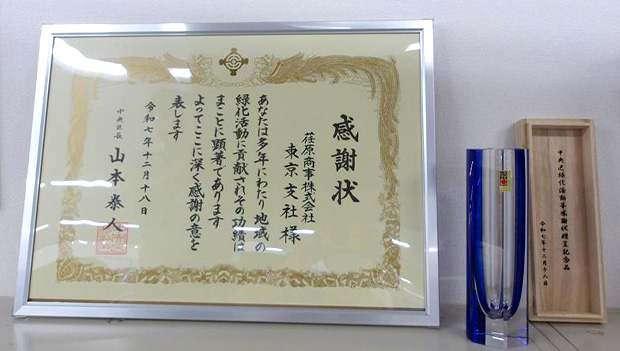 感謝状
荏原商事株式会社
東京支社様
あなたは多年にわたり地域の
緑化活動に貢献されその功績は
まことに顕著であります
よってここに深く感謝の意を
表します
令和七年十二月十八日
中央区長
山本泰人
中央区緑化活動等感謝状贈呈記念品
令和七年十二月十八日